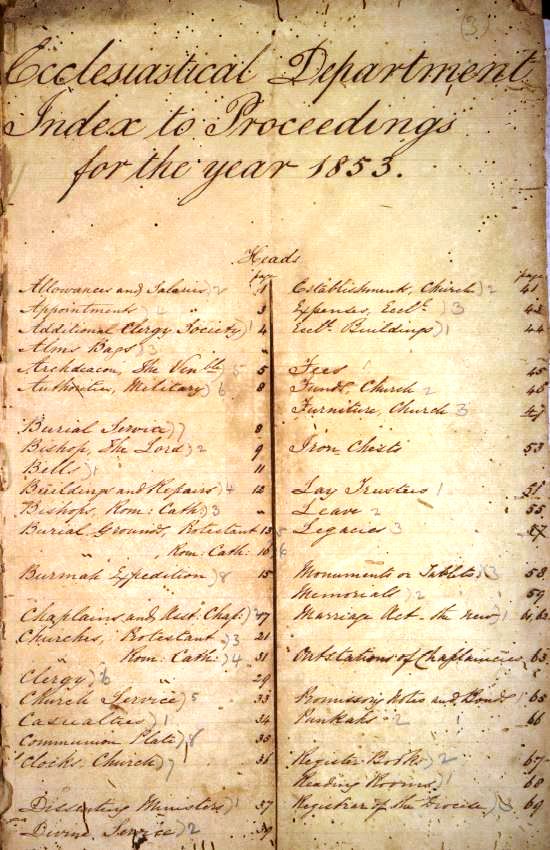 (3)
Ecclesiastical Department
Index to Proceedings
for the year 1853.
Heads
page
Allowances and Salaries) 2 1
Appointments) 4 " 3
Additional Clergy Society) 1 4
Alms Bags) 3 "
Archdeacon, The Venble 5 5
Authorities, Military) 6 8
Burial Service) 7 8
Bishop, The Lord) 2 9
Bells) 1 11
Buildings and Repairs) 4 12
Bishops, Rom: Cath) 3 "
Burial Grounds, Protestant 13 5
" , Rom: Cath: 16 6
Burmah Expedition) 8 15
Chaplains and Asst. Chap:) 2 17
Churches, Protestant) 3 21
Rom: Cath:) 4 31
Clergy) 6 29
Church Service) 5 33
Casualties) 1 34
Communion Plate) 8 35
Clocks, Church) 7 36
Dissenting Ministers) 1 37
Divine Service) 2 39
page
Establishments, Church) 2 41
Expenses, Eccl.) 3 43
Eccl. Buildings) 1 44
Fees 1 45
Funds, Church 2 46
Furniture, Church 3 47
Iron Chests 53
Lay Trustees 1
Leave 2 55
Legacies 3 57
Monuments or Tablets) 3 58
Memorials) 2 59
Marriage Act, the new) 1 61,62
Outstations of Chaplaincies, 63
Promissory Notes and Bonds 1 65
Punkahs 2 66
Register Books) 2 67
Reading Rooms) 1 68
Registrar of the Diocese) 3 69